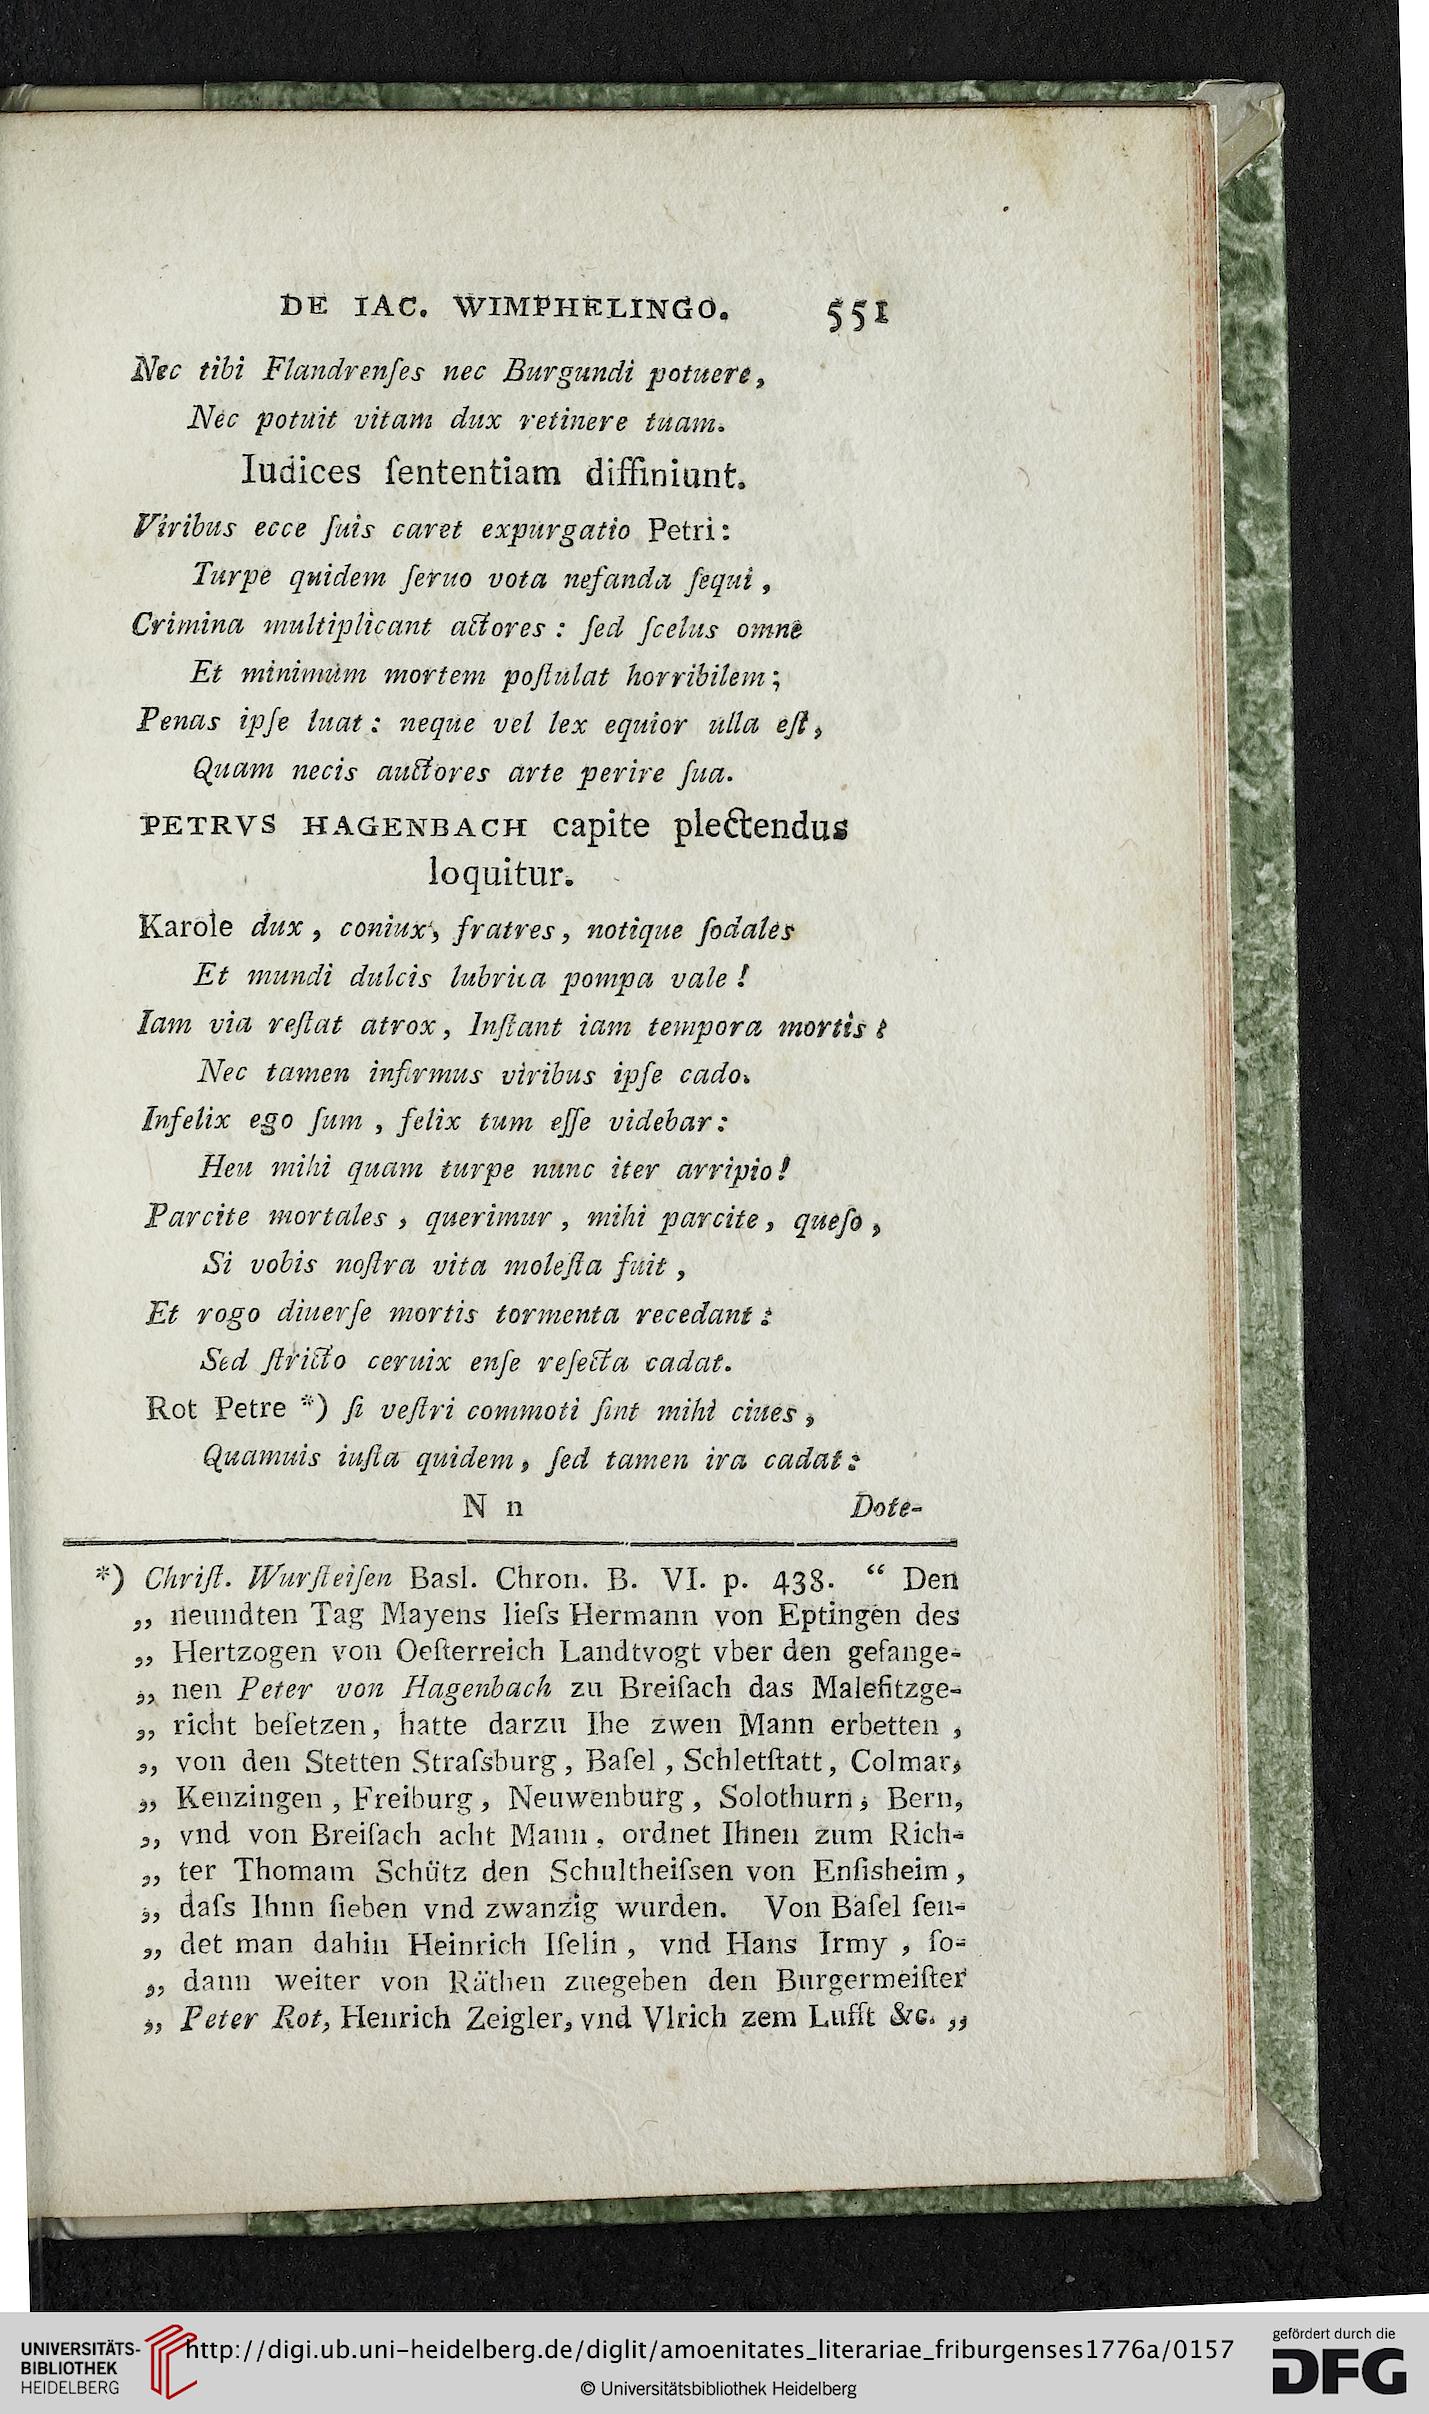 DE IAC. WIMPHELINGO. 551
Nec tibi Flandrenſes nec Burgundi potuere,
Nec potuit vitam dux retinere tuam.
Iudices ſententiam diffiniunt.
Viribus ecce ſuis caret expurgatio Petri:
Turpe quidem ſeruo vota nefanda ſequi,
Crimina multiplicant actores: ſed ſcelus omne
Et minimum mortem poſtulat horribilem;
Penas ipſe luat: neque vel lex equior ulla eſt,
Quam necis auctores arte perire ſua.
PETRVS HAGENBACH capite plectendus
loquitur.
Karole dux, coniux, fratres, notique ſodales
Et mundi dulcis lubrica pompa vale!
Iam via reſtat atrox, Inſtant iam tempora mortis:
Nec tamen infirmus viribus ipſe cado.
Infelix ego ſum, felix tum eſſe videbar:
Heu mihi quam turpe nunc iter arripio!
Parcite mortales, querimur, mihi parcite, queſo,
Si vobis noſtra vita moleſta fuit,
Et rogo diuerſe mortis tormenta recedant:
Sed ſtricto ceruix enſe reſecta cadat.
Rot Petre *) ſi veſtri commoti ſint mihi ciues,
Quamuis iuſta quidem, ſed tamen ira cadat:
N n Dote-
*) Chriſt. Wurſteiſen Basl. Chron. B. VI. p. 438. “ Den
„ neundten Tag Mayens lieſs Hermann von Eptingen des
„ Hertzogen von Oeſterreich Landtvogt vber den gefange-
„ nen Peter von Hagenbach zu Breiſach das Malefitzge-
„ richt beſetzen, hatte darzu Ihe zwen Mann erbetten,
„ von den Stetten Straſsburg, Baſel, Schletſtatt, Colmar,
„ Kenzingen, Freiburg, Neuwenburg, Solothurn, Bern,
„ vnd von Breiſach acht Mann, ordnet Ihnen zum Rich-
„ ter Thomam Schütz den Schultheiſsen von Enſisheim,
„ daſs Ihnn ſieben vnd zwanzig wurden. Von Baſel ſen-
„ det man dahin Heinrich Iſelin, vnd Hans Irmy, ſo-
„ dann weiter von Räthen zuegeben den Burgermeiſter
„ Peter Rot, Henrich Zeigler, vnd Vlrich zem Lufft &c. „
UNIVERSITÄTS-
BIBLIOTHEK
HEIDELBERG
http://digi.ub.uni-heidelberg.de/diglit/amoenitates_literariae_friburgenses1776a/0157
© Universitätsbibliothek Heidelberg
gefördert durch die
DFG